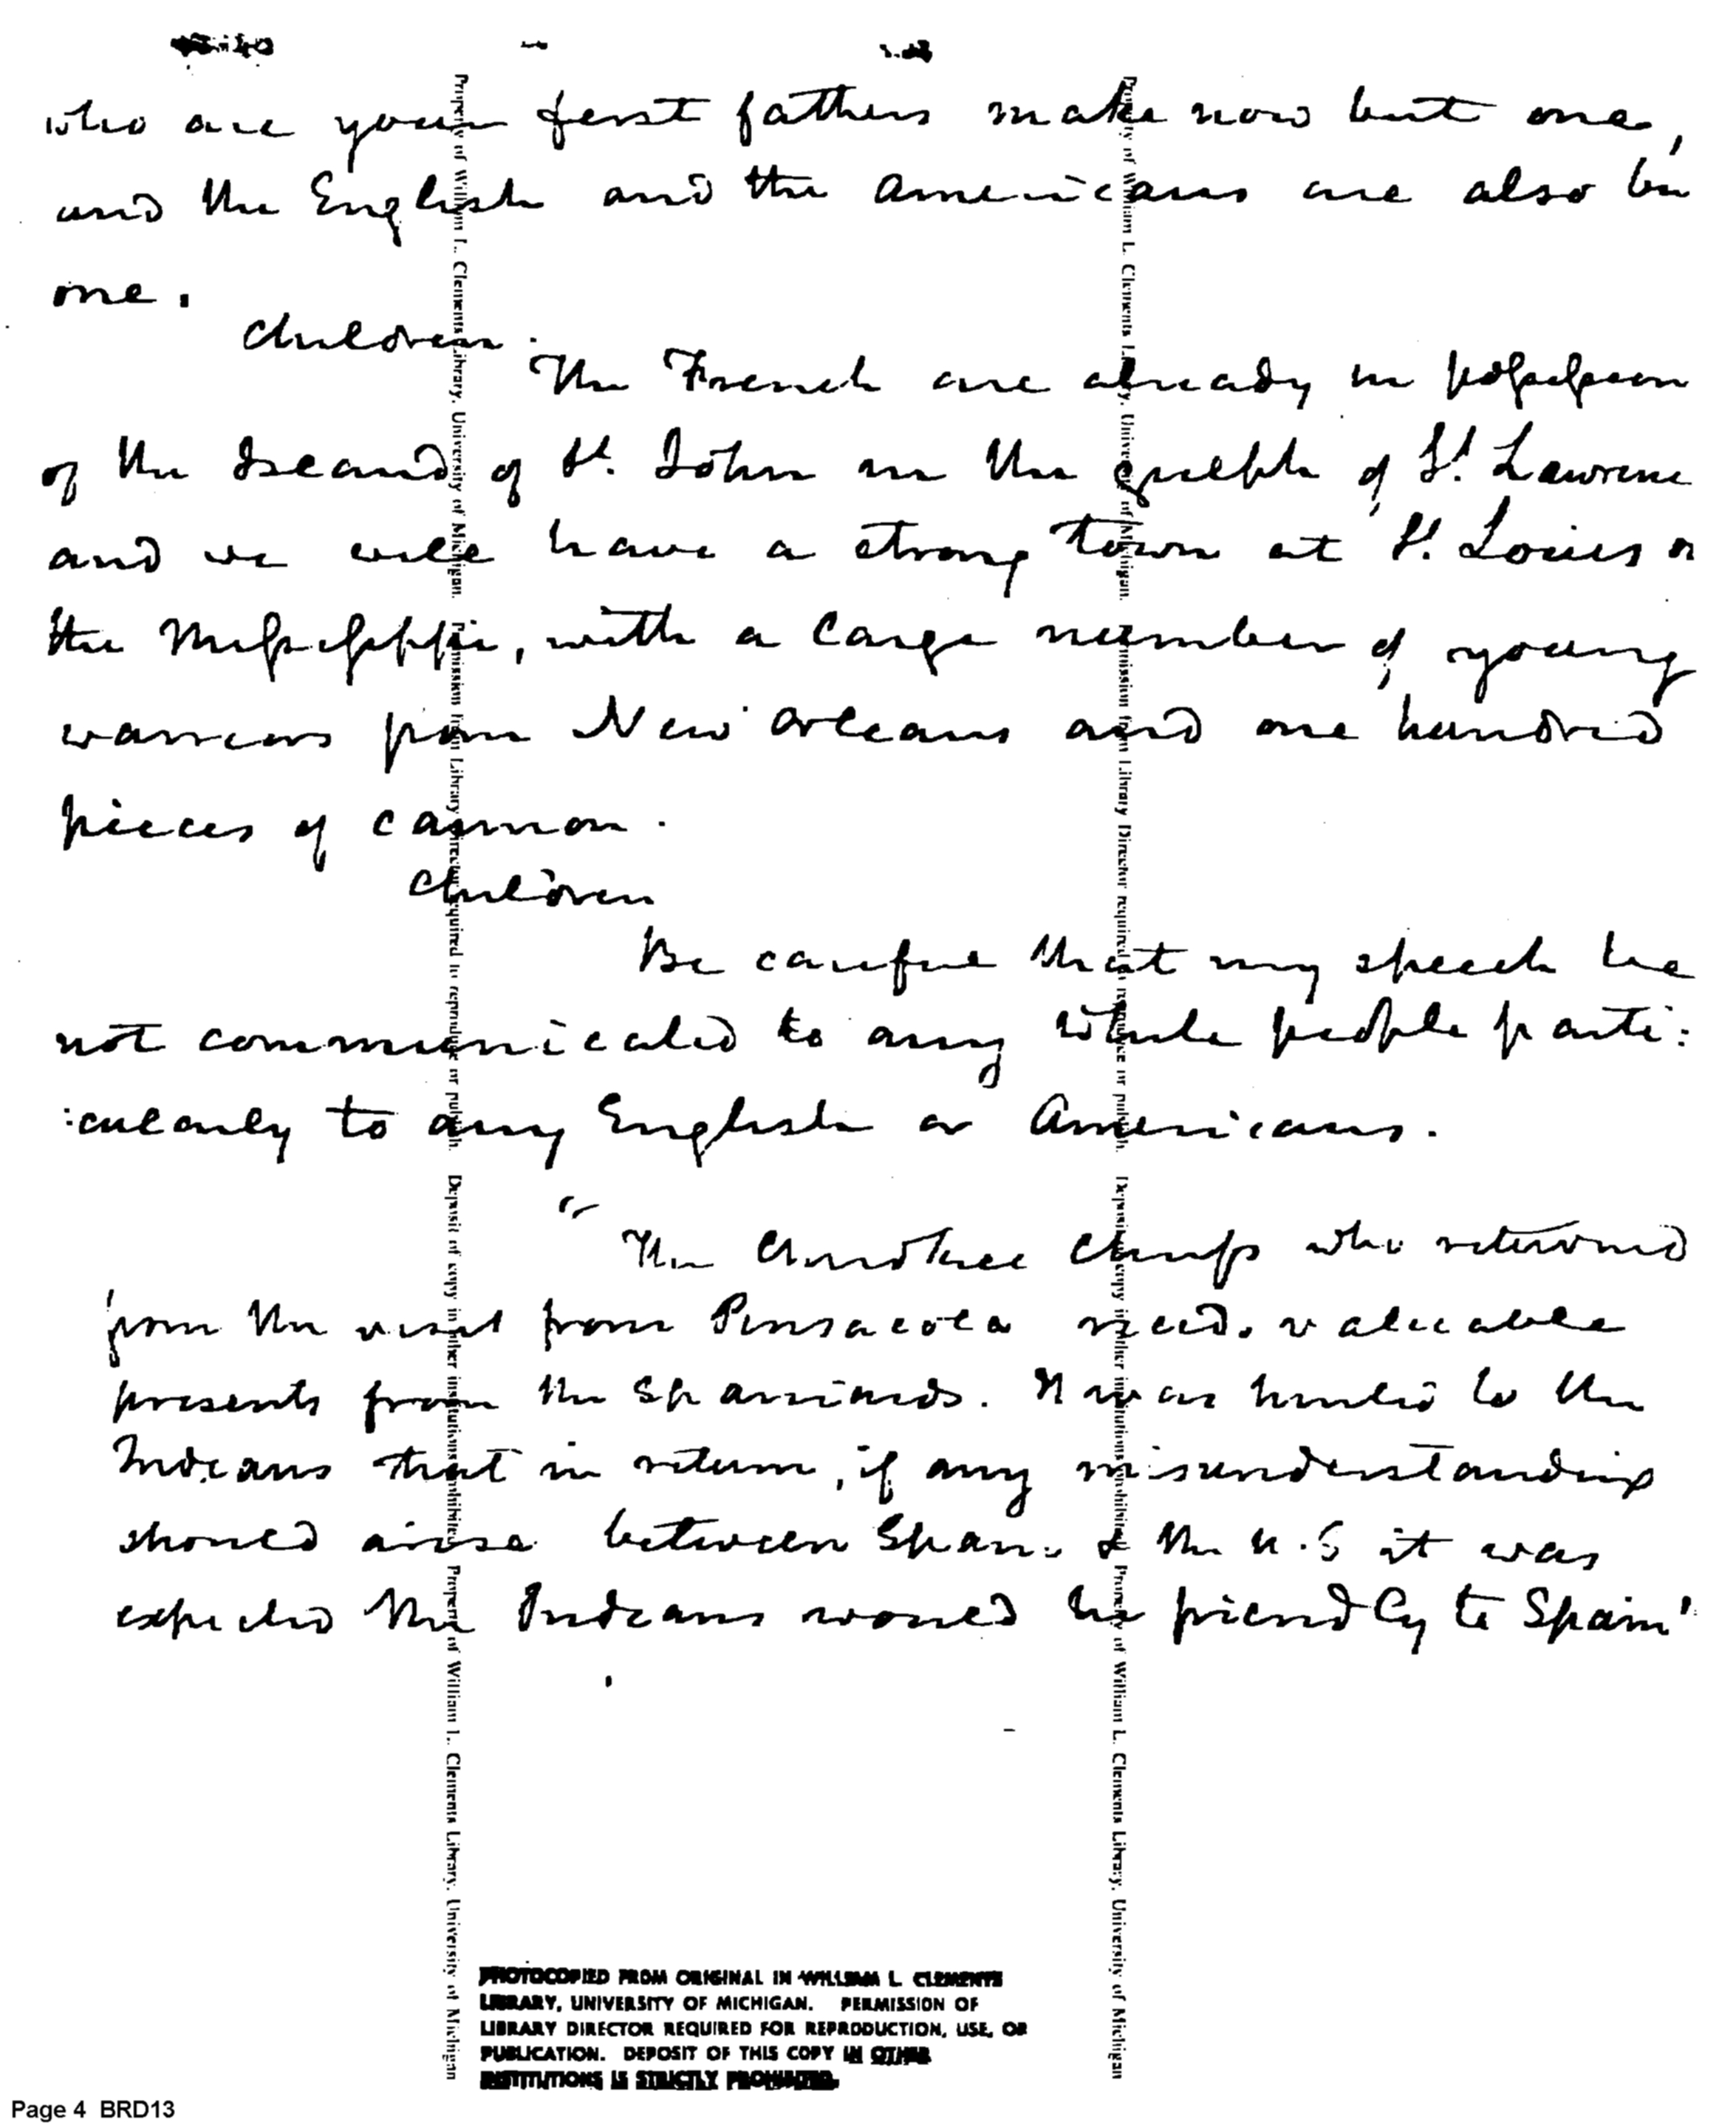 who are your first fathers make now but one,
and the English and the Americans are also but
one.
Children.
The French are already in possession
of the Island of St. John in the gulph of St. Lawrence
and we will have a strong town at St. Louis on
the Mississippi, with a large number of young
warriors from New Orleans and one hundred
pieces of cannon.
Children
Be careful that my speech be
not communicated to any white people parti:
:cularly to any English or Americans.
"The Cherokee Chiefs who returned
from the visit from Pensacola recd. valuable
presents from the Spaniards. It was hinted to the
Indians that in return, if any misunderstanding
should arise between Spain & the U.S it was
expected the Indians would be friendly to Spain"
Property of William L. Clements Library, University of Michigan. Permission from Library Director required to reproduce or publish. Deposit of copy in other institutions prohibited. Property of William L. Clements Library, University of Michigan
Property of William L. Clements Library, University of Michigan. Permission from Library Director required to reproduce or publish. Deposit of copy in other institutions prohibited. Property of William L. Clements Library, University of Michigan
PHOTOCOPIED FROM ORIGINAL IN WILLIAM L. CLEMENTS
LIBRARY, UNIVERSITY OF MICHIGAN. PERMISSION OF
LIBRARY DIRECTOR REQUIRED FOR REPRODUCTION, USE, OR
PUBLICATION. DEPOSIT OF THIS COPY IN OTHER
INSTITUTIONS IS STRICTLY PROHIBITED.
Page 4 BRD13